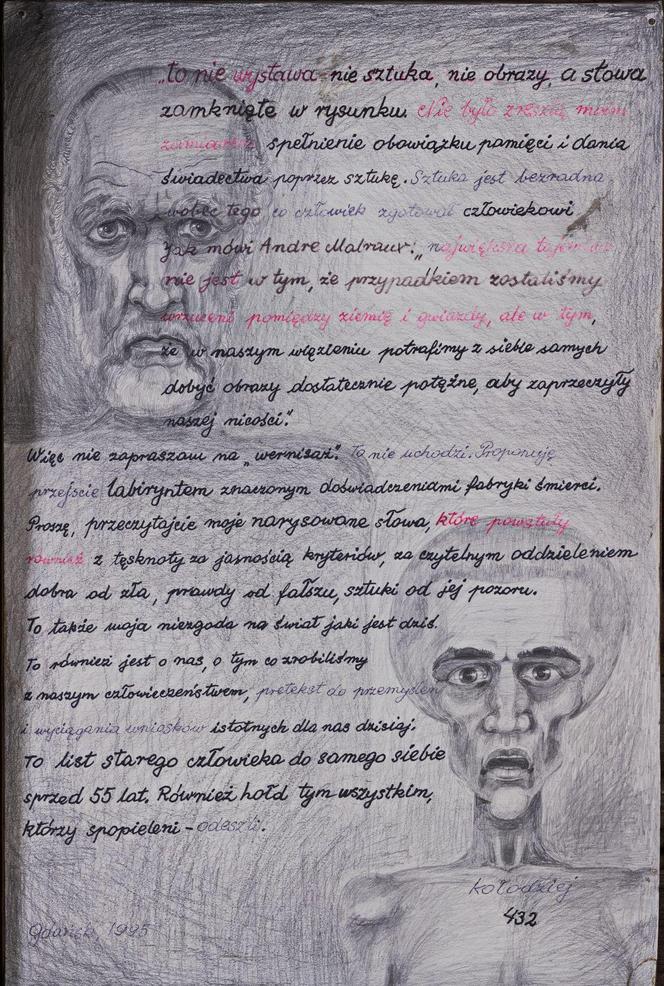 „to nie wystawa - nie sztuka, nie obrazy, a słowa
zamknięte w rysunku. Nie było zresztą moim
zamiarem spełnienie obowiązku pamięci i dania
świadectwa poprzez sztukę. Sztuka jest bezradna
wobec tego co człowiek zgotował człowiekowi
Jak mówi Andre Malraux: „największa tajemnica
nie jest w tym, że przypadkiem zostaliśmy
wrzuceni pomiędzy ziemię i gwiazdy, ale w tym,
że w naszym więzieniu potrafimy z siebie samych
dobyć obrazy dostatecznie potężne, aby zaprzeczyły
naszej nicości."
Więc nie zapraszam na „wernisaż". To nie uchodzi. Proponuję
przejście labiryntem znaczonym doświadczeniami fabryki śmierci.
Proszę, przeczytajcie moje narysowane słowa, które powstały
również z tęsknoty za jasnością kryteriów, za czytelnym oddzieleniem
dobra od zła, prawdy od fałszu, sztuki od jej pozoru.
To także moja niezgoda na świat jaki jest dziś.
To również jest o nas, o tym co zrobiliśmy
z naszym człowieczeństwem, pretekst do przemyśleń
i wyciągania wniosków istotnych dla nas dzisiaj.
To list starego człowieka do samego siebie
sprzed 55 lat. Również hołd tym wszystkim,
którzy spopieleni - odeszli.
Kołodziej
432
Gdańsk, 1995